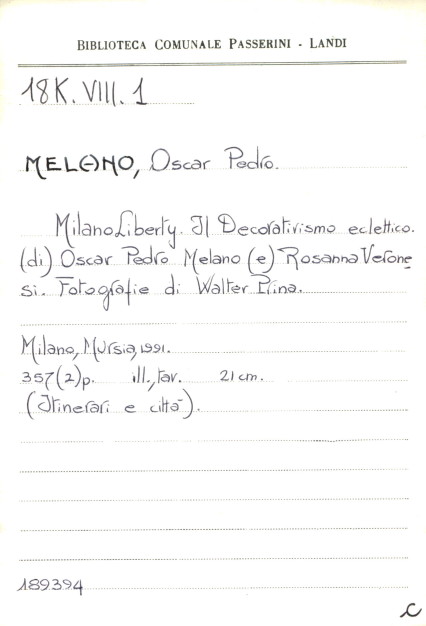 BIBLIOTECA COMUNALE PASSERINI - LANDI
18K. VIII. 1
MELANO, Oscar Pedro.
Milano Liberty. Il Decorativismo eclettico.
(di) Oscar Pedro Melano (e) Rosanna Verone
si. Fotografie di Walter Prina.
Milano, Mursia, 1991.
357(2)p. ill., tav. 21 cm.
(Itinerari e città).
189394
C